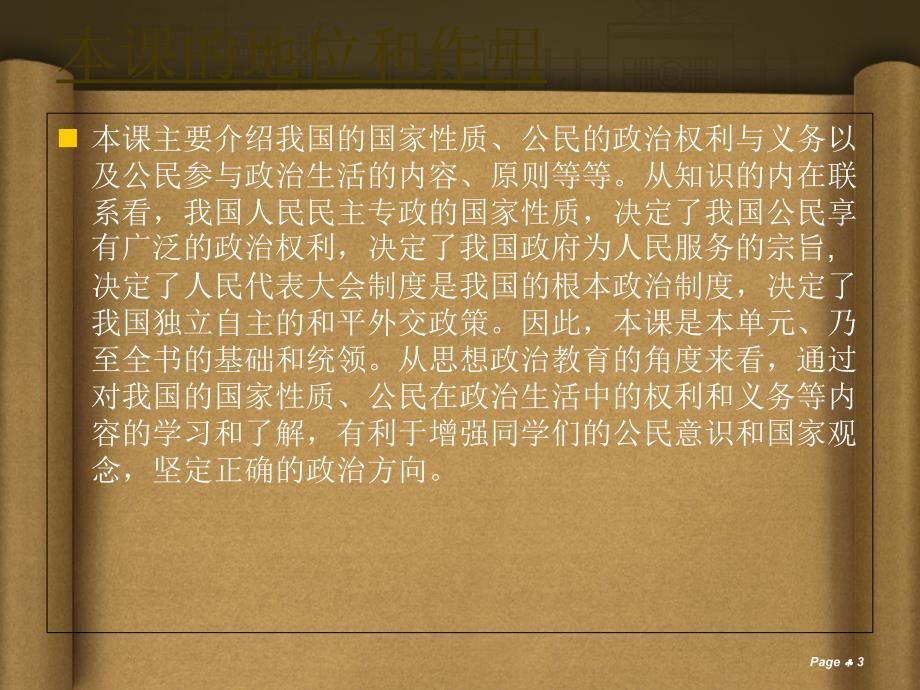 本课的地位和作用
本课主要介绍我国的国家性质、公民的政治权利与义务以
及公民参与政治生活的内容、原则等等。从知识的内在联
系看，我国人民民主专政的国家性质，决定了我国公民享
有广泛的政治权利，决定了我国政府为人民服务的宗旨，
决定了人民代表大会制度是我国的根本政治制度，决定了
我国独立自主的和平外交政策。因此，本课是本单元、乃
至全书的基础和统领。从思想政治教育的角度来看，通过
对我国的国家性质、公民在政治生活中的权利和义务等内
容的学习和了解，有利于增强同学们的公民意识和国家观
念，坚定正确的政治方向。
Page ♣ 3